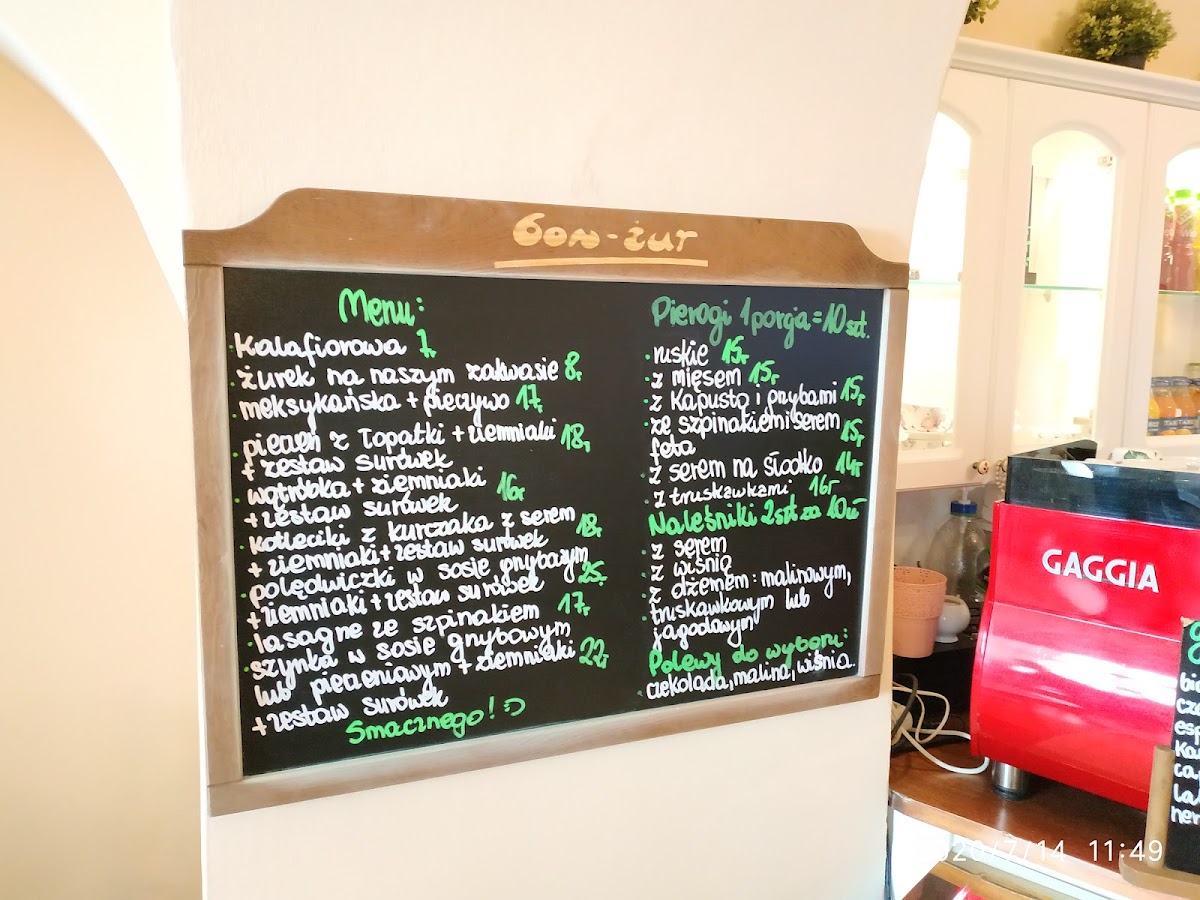 bon-żur
Menu:
Kalafiorowa 7,-
żurek na naszym zakwasie 8,-
meksykańska + pieczywo 17,-
pieczeń z łopatki + ziemniaki 18,-
+ zestaw surówek
wątróbka + ziemniaki 16,-
+ zestaw surówek
kotleciki z kurczaka z serem 18,-
+ ziemniaki + zestaw surówek
polędwiczki w sosie grybowym 25,-
+ ziemniaki + zestaw surówek
lasagne ze szpinakiem 17,-
szynka w sosie grybowym
lub pieczeniowym + ziemniaki 22,-
+ zestaw surówek
Smacznego! :)
Pierogi 1 porcja = 10 szt.
ruskie 15,-
z mięsem 15,-
z Kapustą i grybami 15,-
ze szpinakiem i serem 15,-
feta
z serem na słodko 14,-
z truskawkami 16,-
Naleśniki 2szt za 10 zł
z serem
z wiśnią
z dżemem: malinowym,
truskawkowym lub
jagodowym
Polewy do wyboru:
czekolada, malina, wiśnia.
GAGGIA
2020/7/14 11:49